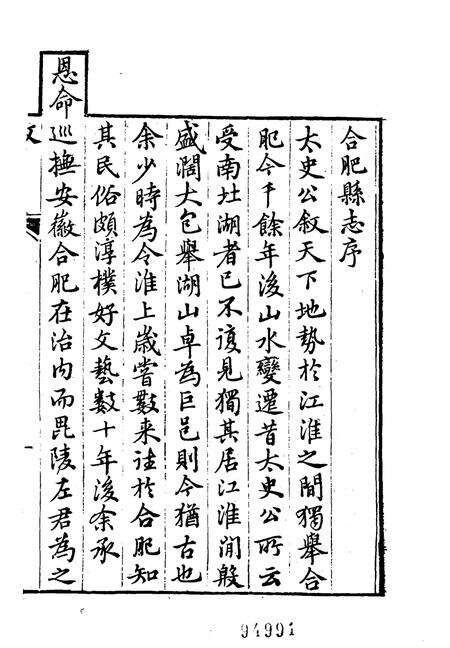 合肥縣志序
太史公敘天下地勢於江淮之間獨舉合
肥今千餘年後山水變遷昔太史公所云
受南北湖者已不復見獨其居江淮間殷
盛闊大包舉湖山卓為巨邑則今猶古也
余少時為令淮上歲嘗數来往於合肥知
其民俗頗淳樸好文藝數十年後余承
恩命巡撫安徽合肥在治内而毘陵左君為之
一
94991